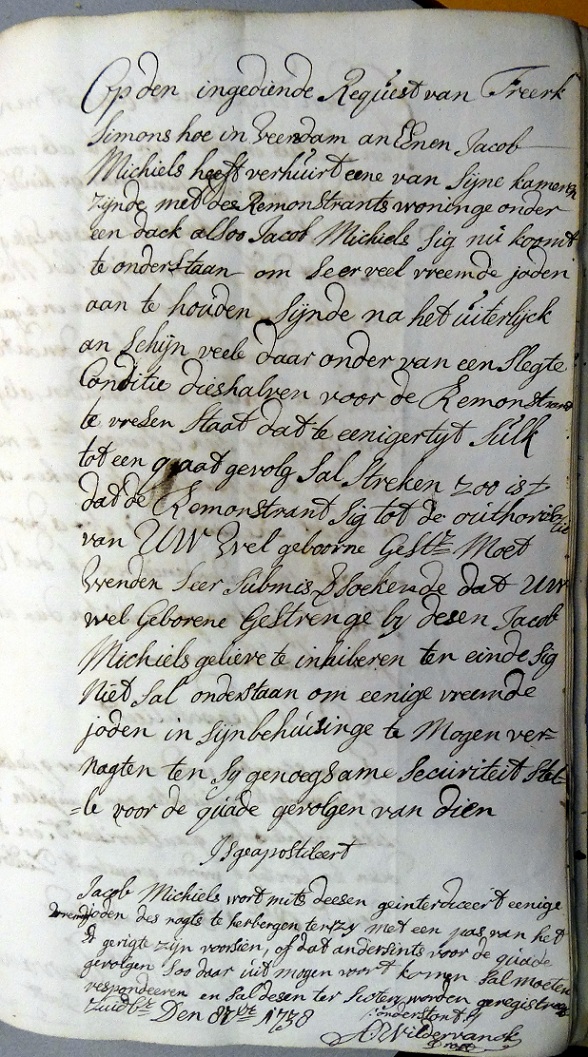 Op den ingediende Request van Freerk
Simons hoe in Veendam an Eenen Jacob
Michiels heeft verhuirt eene van Sijne kamers
zijnde met des Remonstrants woninge onder
een dack alsoo Jacob Michiels Sig nu koomt
te onderstaan om Seer veel vreemde joden
aan te houden Sijnde na het uiterlijck
an Schijn veele daar onder van een Slegte
Conditie dieshalven voor de Remonstrant
te vresen Staat dat te eenigertyt Sulk
tot een quaat gevolg Sal Strecken zoo is t
dat de Remonstrant Sig tot de outhoriteit
van UW Wel geboorne Gestr Moet
Wenden Seer Submis Versoekende dat UW
wel Geborene Gestrenge by desen Jacob
Michiels gelieve te inhiberen ten einde Sig
Niet Sal onderstaan om eenige vreemde
joden in Sijn behuisinge te Mogen ver=
nagten ten Sy genoegsame Securiteit Stel
=le voor de quade gevolgen van dien
Is geapostileert
Jacob Michiels wort mits deesen geinterdiceert eenige
vreemde joden des nagts te herbergen ten zy met een pas van het
gerigte zijn voorsien, of dat andersints voor de quade
gevolgen Soo daar uit mogen voort komen Sal moeten
respondeeren en Sal desen ter worden geregistreert
Zuidbr Den 8 1738 onderstont
A Wildervanck
Drost